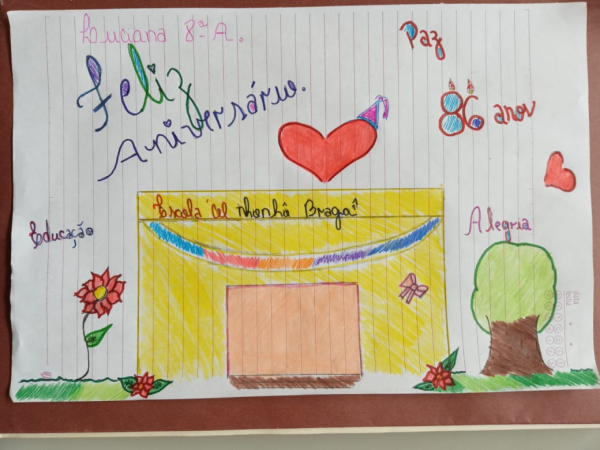 Luciana 8ª A.
Paz
Feliz
Aniversário.
86 anos
Escola "Cel Nhonhô Braga"
Educação
Alegria